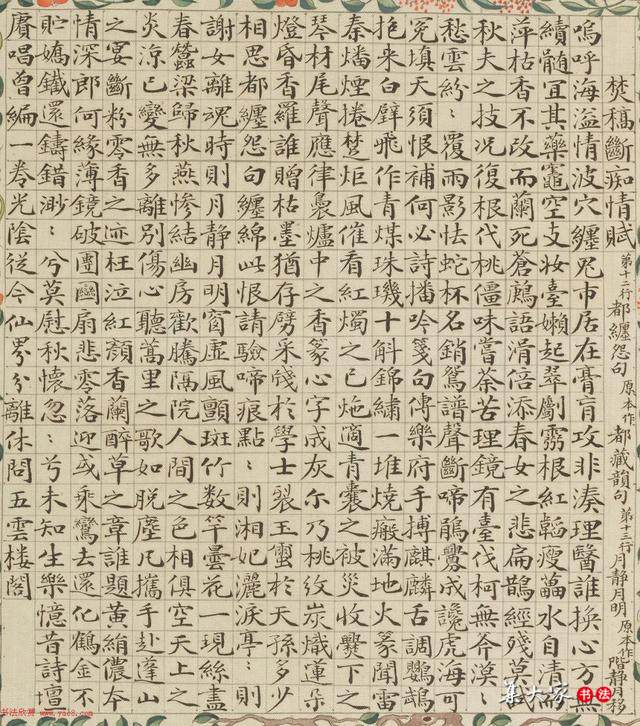 焚稿斷痴情賦 第十二行都纏怨句原本作都藏韻句 第十三行月靜月明原本作階靜月移
嗚呼海溢情波穴纏咒市居在膏肓攻非湊理醫誰換心方無
續髓宜其藥竈空支妝臺嬾起翠劚霧根紅韜瘦蕌水自清而
萍枯香不改而蘭死蒼鷓語滑倍添春女之悲扁鵲經殘莫奏
秋夫之技況復根代桃僵味嘗荼苦理鏡有臺伐柯無斧漠：
愁雲紛：覆雨影怯蛇杯名銷鴛譜聲斷啼鵑釁成讒虎海可
冤填天須恨補何必詩播吟箋句傳樂府手搏麒麟舌調鸚鵡
抱來白璧飛作青煤珠璣十斛錦繡一堆燒瘢滿地火篆聞雷
秦燔煙捲楚炬風催看紅燭之已灺適青囊之被災收爨下之
琴材尾聲應律裊爐中之香篆心字成灰尒乃桃紋炭熾蓮朵
燈昏香羅誰贈枯墨猶存劈采牋於學士裂玉璽於天孫多少
相思都纏怨句纏綿此恨請驗啼痕點：則湘妃灑淚亭：則
謝女離魂時則月靜月明窗虛風顫斑竹數竿曇花一現絲盡
春蠶梁歸秋燕慘結幽房歡騰隔院人間之色相俱空天上之
炎涼已變無多離別傷心聽蒿里之歌如脫塵凡攜手赴蓬山
之宴斷粉零香之迹枉泣紅顏香蘭醉草之章誰題黃絹儂本
情深郎何緣薄鏡破團圞扇悲零落迎或乘鸞去還化鶴金不
貯嬌鐵還鑄錯渺：兮莫慰秋懷忽：兮未知生樂憶昔詩壇
賡唱曾編一卷光陰從今仙界分離休問五雲樓閣
集大家 书法
书法欣赏 www.yac8.com